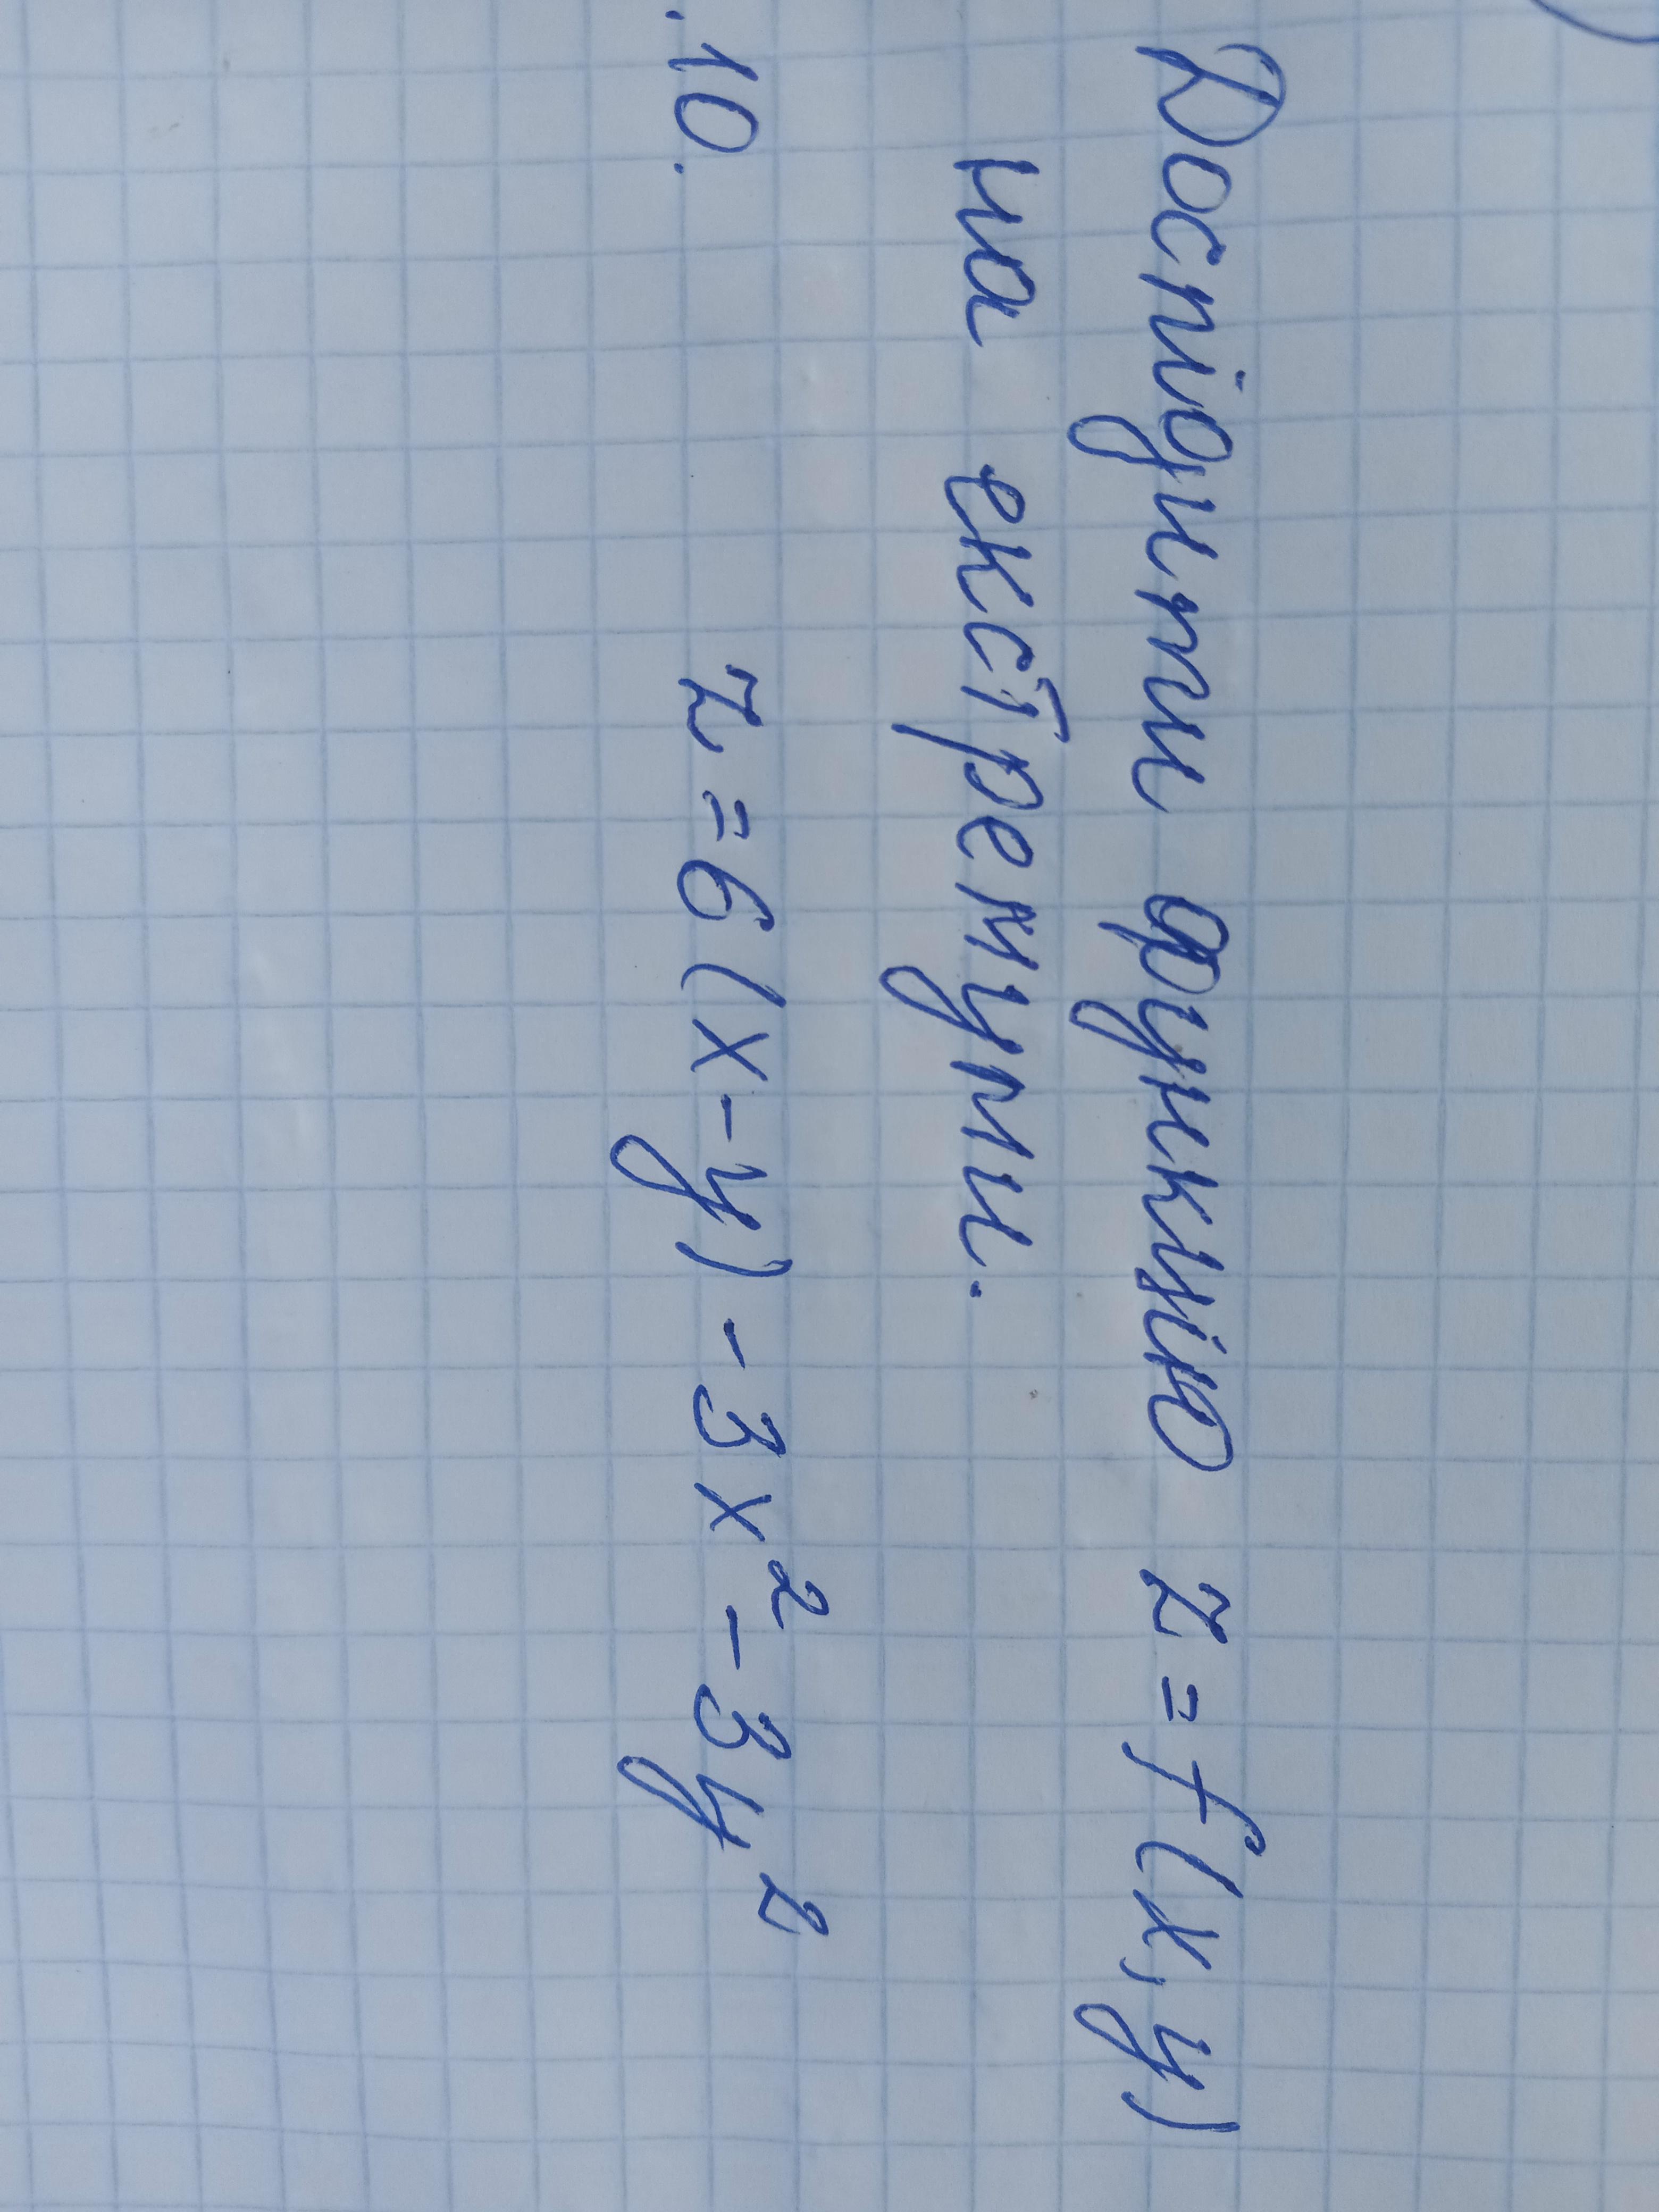 Дослідити функцію z = f(x,y)
на екстремуми.
.10. z = 6(x-y) - 3x² - 3y²